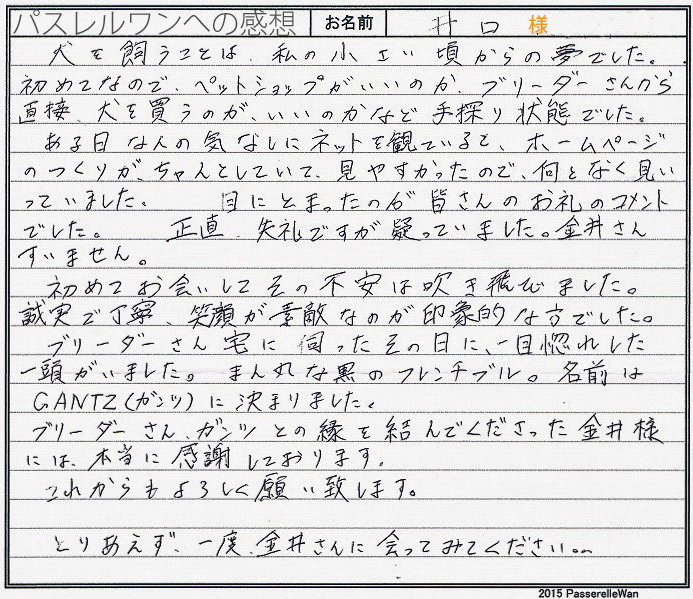 パスレルワンへの感想 お名前 井口 様
犬を飼うことは、私の小さい頃からの夢でした。
初めてなので、ペットショップがいいのか、ブリーダーさんから
直接、犬を買うのが、いいのかなど手探り状態でした。
ある日なんの気なしにネットを観ていると、ホームページ
のつくりが、ちゃんとしていて、見やすかったので、何となく見い
っていました。 目にとまったのが皆さんのお礼のコメント
でした。 正直、失礼ですが疑っていました。金井さん
すいません。
初めてお会いしてその不安は吹き飛びました。
誠実で丁寧、笑顔が素敵なのが印象的な方でした。
ブリーダーさん宅に伺ったその日に、一目惚れした
一頭がいました。まん丸な黒のフレンチブル。名前は
GANTZ(ガンツ)に決まりました。
ブリーダーさん、ガンツとの縁を結んでくださった金井様
には、本当に感謝しております。
これからもよろしく願い致します。
とりあえず、一度、金井さんに会ってみてください。
2015 PasserelleWan